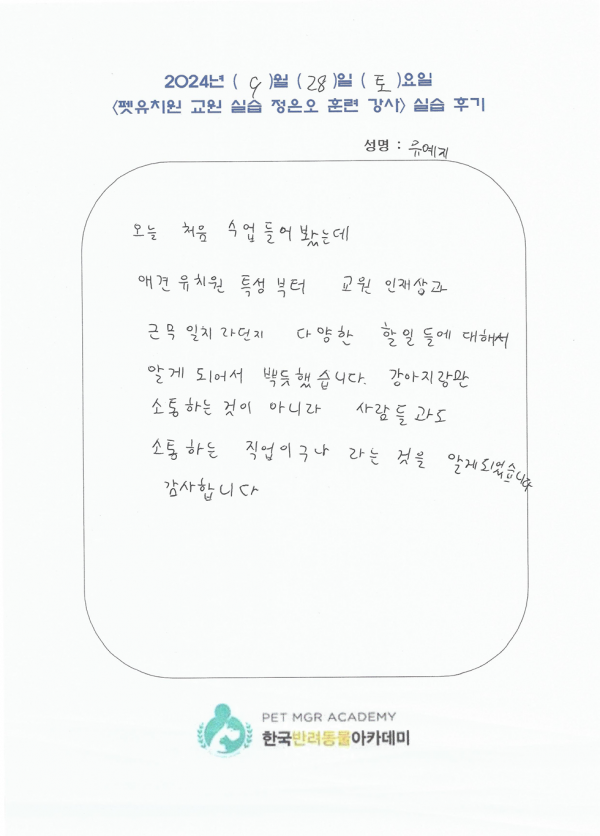 2024년 ( 9 )월 ( 28 )일 ( 토 )요일
<펫유치원 교원 실습 정은오 훈련 강사> 실습 후기
성명 : 류예지
오늘 처음 수업 들어봤는데
애견유치원 특성부터 교원 인재상과
근무 일치라던지 다양한 할일들에 대해서
알게 되어서 뿍듯했습니다. 강아지랑만
소통하는 것이 아니라 사람들과도
소통하는 직업이구나 라는 것을 알게되었습니다
감사합니다
PET MGR ACADEMY
한국반려동물아카데미